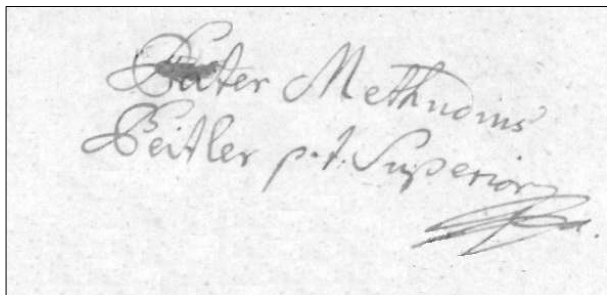 Pater Methudius
Peitler p. t. Superior